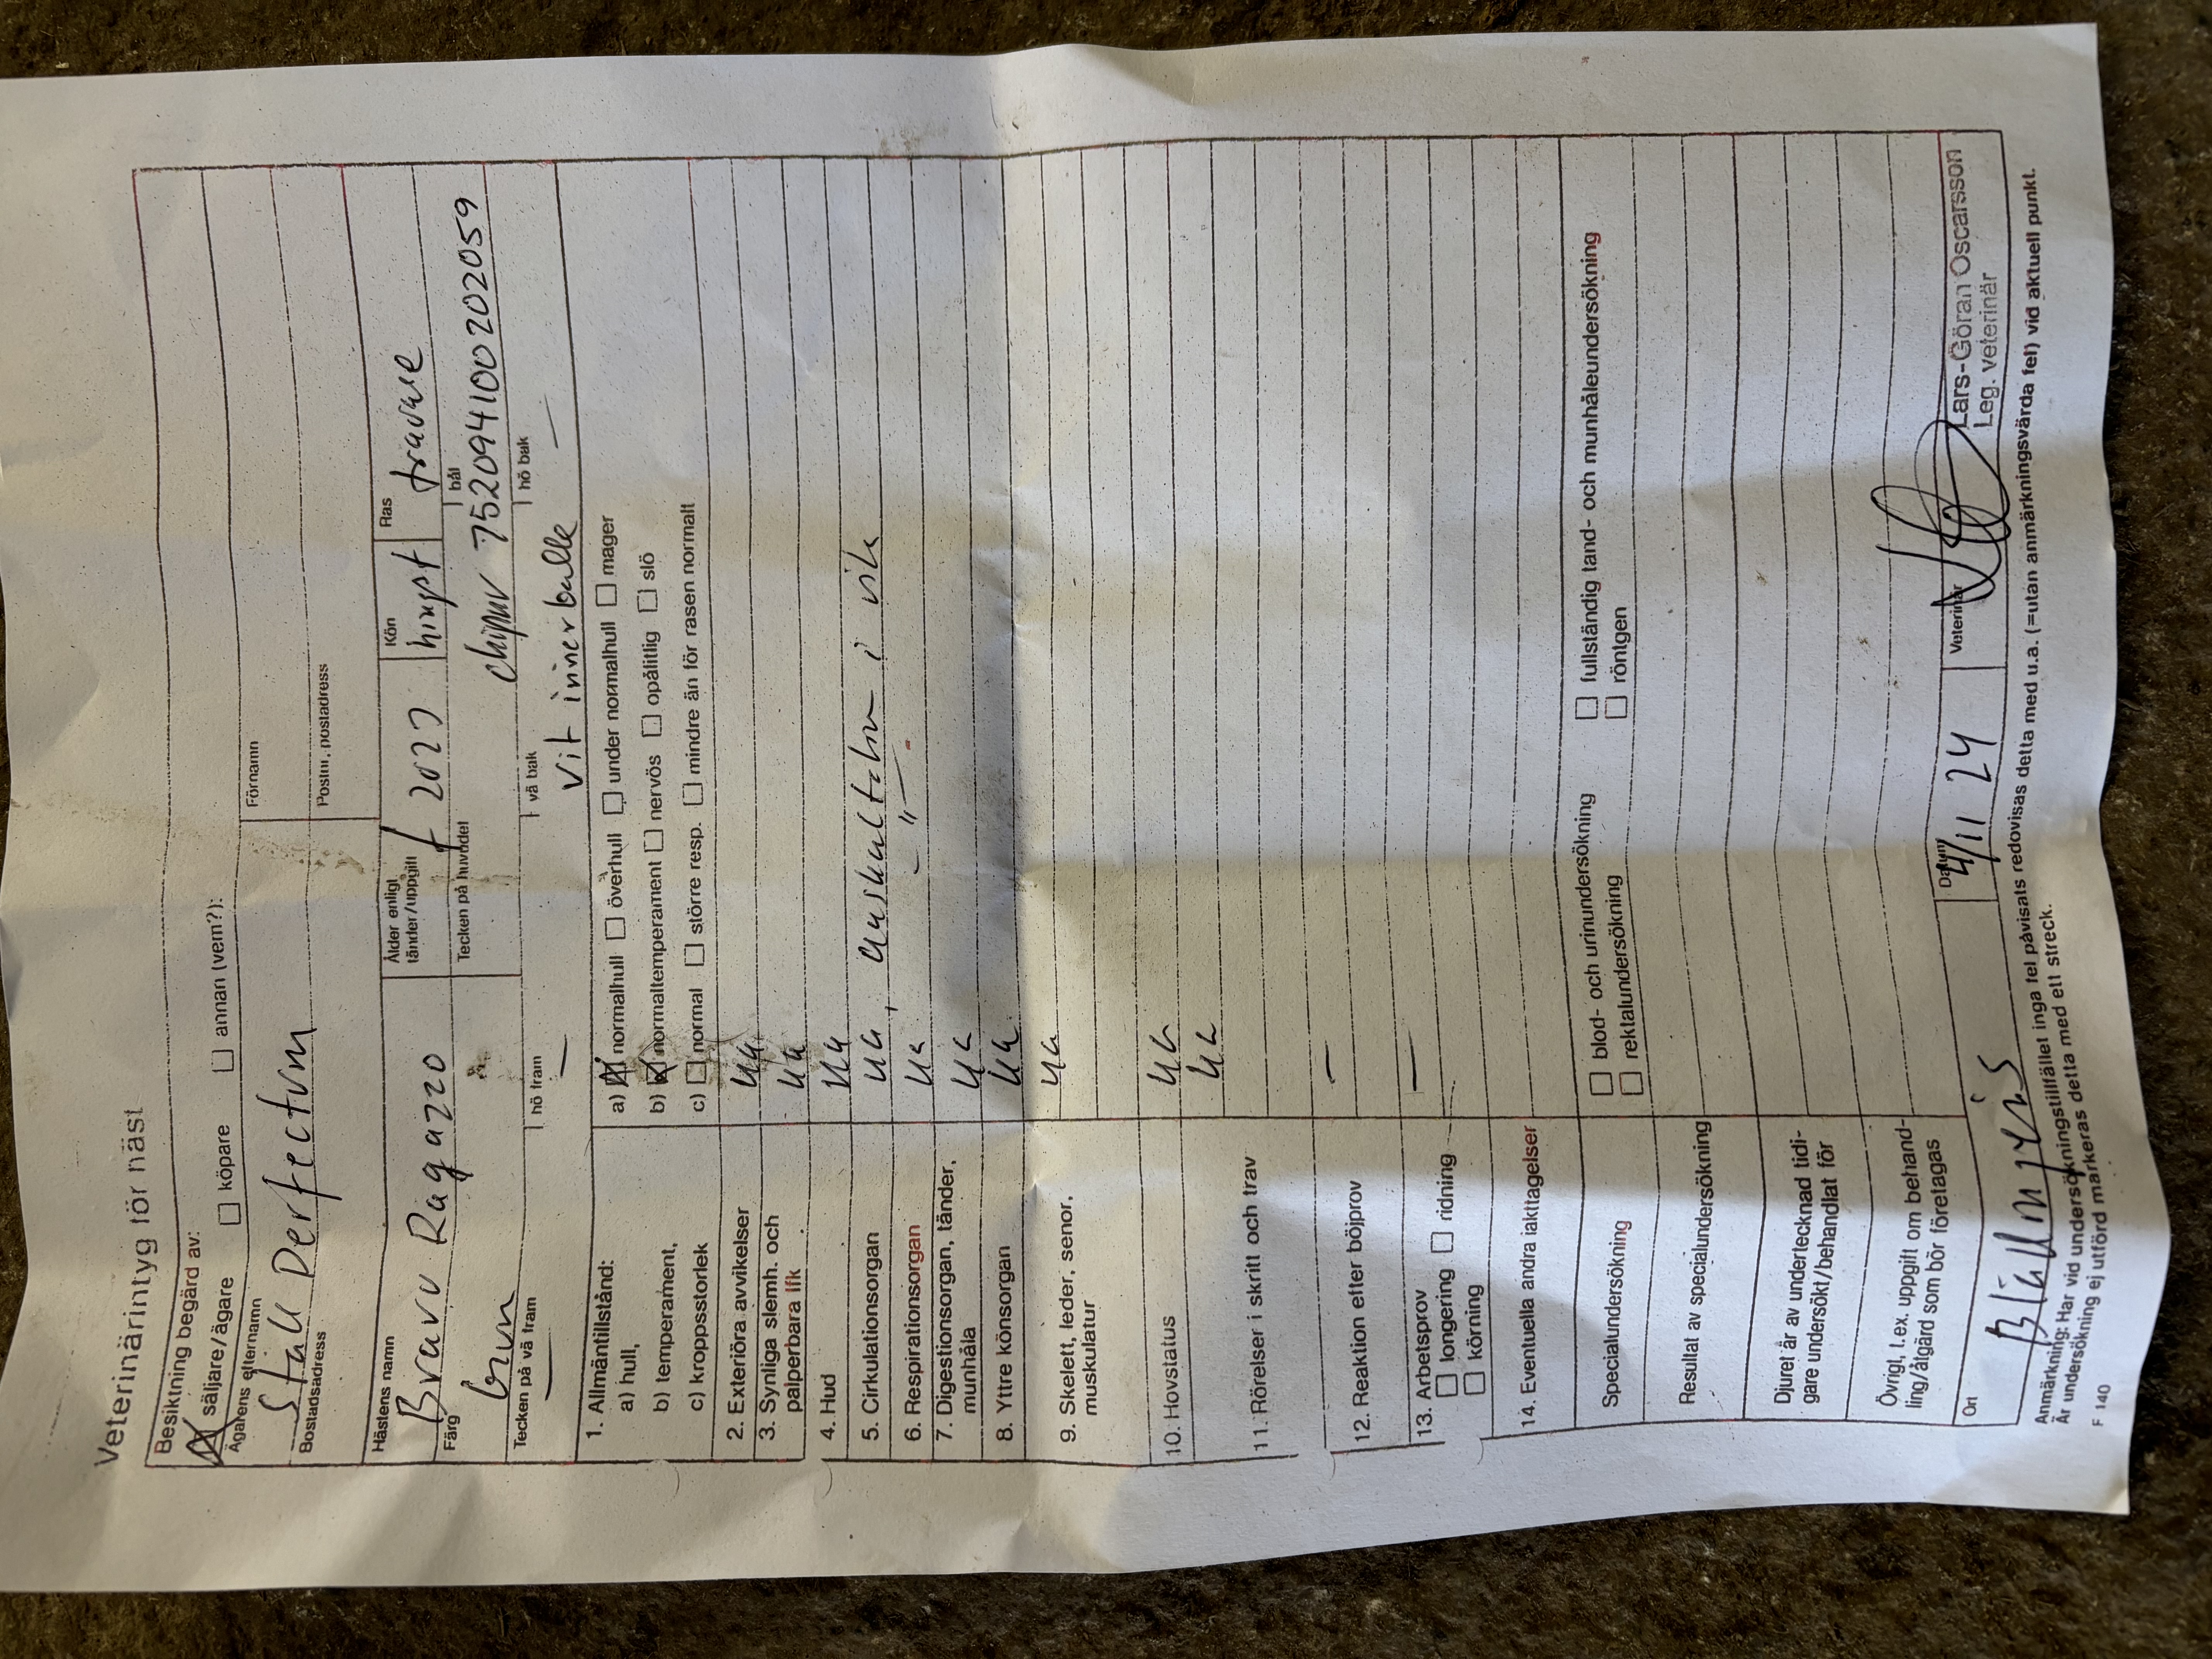 Veterinärintyg för häst
Besiktning begärd av:
☒ säljare/ägare ☐ köpare ☐ annan (vem?):
Ägarens efternamn Förnamn
Stall Perfectum
Bostadsadress Postnr, postadress
Hästens namn Ålder enligt tänder/uppgift Kön Ras
Bravu Ragazzo f 2023 hingst travare
Färg Tecken på huvudet bål
brun chipnr 752094100202059
Tecken på vä fram hö fram vä bak hö bak
— — vit inner balle —
1. Allmäntillstånd:
a) hull, a) ☒ normalhull ☐ överhull ☐ under normalhull ☐ mager
b) temperament, b) ☒ normaltemperament ☐ nervös ☐ opålitlig ☐ slö
c) kroppsstorlek c) ☐ normal ☐ större resp. ☐ mindre än för rasen normalt
2. Exteriöra avvikelser ua
3. Synliga slemh. och palperbara lfk ua
4. Hud ua
5. Cirkulationsorgan ua, auskultation i vila
6. Respirationsorgan ua -"-
7. Digestionsorgan, tänder, munhåla ua
8. Yttre könsorgan ua
9. Skelett, leder, senor, muskulatur ua
10. Hovstatus ua
ua
11. Rörelser i skritt och trav
12. Reaktion efter böjprov —
13. Arbetsprov —
☐ longering ☐ ridning
☐ körning
14. Eventuella andra iakttagelser
Specialundersökning ☐ blod- och urinundersökning ☐ fullständig tand- och munhåleundersökning
☐ rektalundersökning ☐ röntgen
Resultat av specialundersökning
Djuret är av undertecknad tidigare undersökt/behandlat för
Övrigt, t.ex. uppgift om behandling/åtgärd som bör företagas
Ort Datum Veterinär
4/11 24 Lars-Göran Oscarsson
Leg. veterinär
Anmärkning: Har vid undersökningstillfället inga fel påvisats redovisas detta med u.a. (=utan anmärkningsvärda fel) vid aktuell punkt.
Är undersökning ej utförd markeras detta med ett streck.
F 140